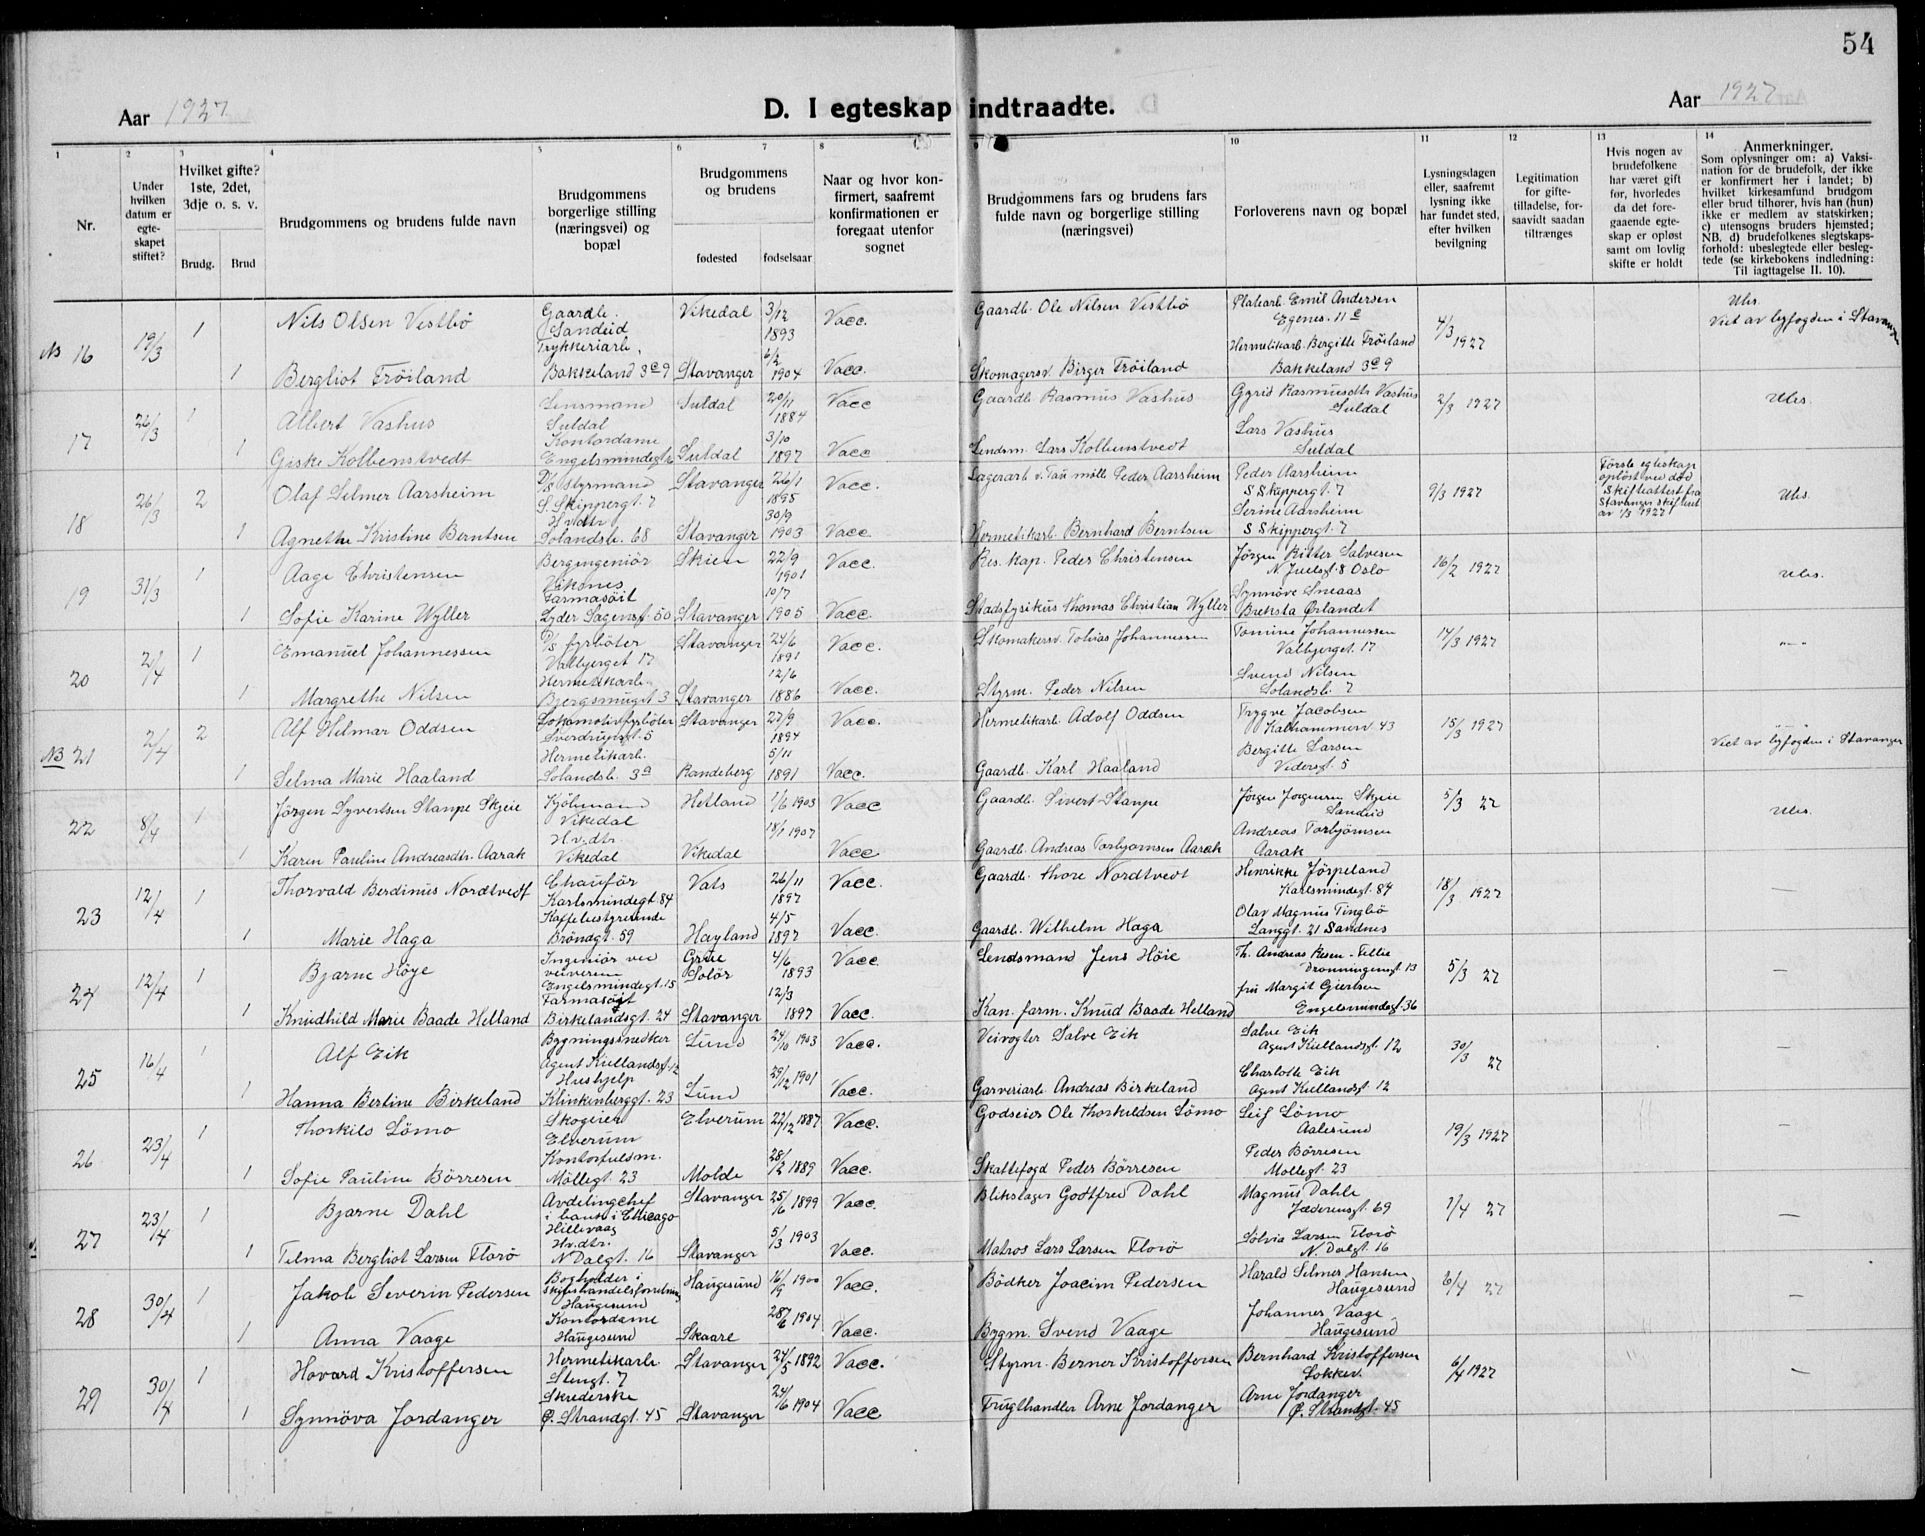 54
Aar 1927
D. I egteskap indtraadte.
Aar 1927
1
2
3
4
5
6
7
8
9
10
11
12
13
14
Nr.
Under
hvilken
datum er
egte-
skapet
stiftet?
Hvilket gifte?
1ste, 2det,
3dje o. s. v.
Brudg.
Brud
Brudgommens og brudens fulde navn
Brudgommens
borgerlige stilling
(næringsvei) og
bopæl
Brudgommens
og brudens
fødested
fødselsaar
Naar og hvor kon-
firmert, saafremt
konfirmationen er
foregaat utenfor
sognet
Brudgommens fars og brudens fars
fulde navn og borgerlige stilling
(næringsvei)
Forloverens navn og bopæl
Lysningsdagen
eller, saafremt
lysning ikke
har fundet sted,
efter hvilken
bevilgning
Legitimation
for gifte-
tilladelse, for-
saavidt saadan
tiltrænges
Hvis nogen av
brudefolkene
har været gift
før, hvorledes
da det fore-
gaaende egte-
skap er opløst
samt om lovlig
skifte er holdt
Anmerkninger.
Som oplysninger om: a) Vaksi-
nation for de brudefolk, der ikke
er konfirmert her i landet; b)
hvilket kirkesamfund brudgom
eller brud tilhører, hvis han (hun)
ikke er medlem av statskirken;
c) utensogns bruders hjemsted;
NB. d) brudefolkenes slegtskaps-
forhold: ubeslegtede eller besleg-
tede (se kirkebokens indledning:
Til iagttagelse II. 10).
NB 16
19/3
1
Nils Olsen Vestbö
Gaardb.
Sandeid
Vikedal
3/12
1893
Vacc.
Gaardb. Ole Nilsen Vestbö
Platearb. Emil Andersen
Egenes. 11 c
4/3 1927
Ubs.
Viet av byfogden i Stavanger
1
Bergliot Fröiland
Trykkeriarb.
Bakkeland 3 c 9
Stavanger
6/2
1904
Vacc.
Skomagersv. Birger Fröiland
Hermetikarb. Bergitte Fröiland
Bakkeland 3 c 9
17
26/3
1
Albert Vashus
Lensmand
Suldal
Suldal
20/11
1884
Vacc
Gaardb. Rasmus Vashus
Gyrid Rasmusdtr Vashus
Suldal
2/3 1927
Ubs.
1
Giske Kolbenstvedt
Kontordame
Engelsmindegt 6
Suldal
3/10
1897
Vacc
Lendsm. Lars Kolbenstvedt
Lars Vashus
Suldal
18
26/3
2
Olaf Selmer Aarsheim
D/s styrmand
S. Skippergt. 7
Stavanger
26/1
1895
Vacc.
Lagerarb v. Tau mölle Peder Aarsheim
Peder Aarsheim
S Skippergt. 7
9/3 1927
Første egteskap
opløst ved död
Skifteattest fra
Stavanger skifteret
av 1/3 1927
Ubs.
1
Agnethe Kristine Berntsen
Hv.dtr
Solandsb. 68
Stavanger
30/9
1903
Vacc.
Hermetikarb. Bernhard Berntsen
Serine Aarsheim
S Skippergt. 7
19
31/3
1
Aage Christensen
Bergingeniör
Skien
22/9
1901
Vacc.
Res. kap. Peder Christensen
Jörgen Ritter Salvesen
N Juelsgt. 8 Oslo
16/2 1927
Ubs.
1
Sofie Karine Wyller
Farmasöit
Lyder Sagensgt. 50
Stavanger
10/7
1905
Vacc.
Stadsfysikus Thomas Christian Wyller
Synnöve Sneaas
Breksta Ørlandet
20
2/4
1
Emanuel Johannessen
D/s fyrböter
Valbjerget 17
Stavanger
24/6
1891
Vacc.
Skomakersv. Tobias Johannessen
Tomine Johannessen
Valbjerget. 17
14/3 1927
-"-
1
Margrethe Nilsen
Hermetikarb.
Bjergsmuget 3
Stavanger
12/6
1886
Vacc.
Styrm. Peder Nilsen
Svend Nilsen
Solandsb. 7
NB 21
2/4
2
Alf Helmar Oddsen
Lokomotivfyrböter
Sverdrupsgt. 5
Stavanger
27/9
1894
Vacc.
Hermetikarb. Adolf Oddsen
Trygve Jacobsen
Kalhammerv 43
15/3 1927
Viet av byfogden i Stavanger
1
Selma Marie Haaland
Hermetikarb.
Solandsb. 3 a
Randeberg
5/11
1891
Vacc.
Gaardb. Karl Haaland
Bergitte Larsen
Vedersgt. 5
22
8/4
1
Jörgen Syvertsen Stanpe Skjeie
Kjöbmand
Vikedal
Hetland
1/6 1903
Vacc
Gaardb. Sivert Stanpe
Jörgen Jorgensen Skjeie
Sandeid
5/3 27
Ubs.
1
Karen Pauline Andreasdtr. Aarak
Hv.dtr
Vikedal
Vikedal
18/1 1907
Vacc
Gaardb. Andreas Torbjornsen Aarak
Andreas Torbjörnsen
Aarak
23
12/4
1
Thorvald Berdinus Nordtvedt
Chauför
Karlsmindegt. 84
Vats
26/11
1897
Vacc.
Gaardb. Thore Nordtvedt
Henrikke Jörpeland
Karlsmindegt. 84
18/3 1927
—
1
Marie Haga
Kaffebestyrerinde
Bröndgt. 59
Høyland
4/5
1897
Vacc.
Gaardb. Wilhelm Haga
Olav Magnus Tingbö
Langgt. 21 Sandnes
24
12/4
1
Bjarne Höye
Ingeniör ved
veivesen
Engelsmindegt. 15
Grue
Solör
4/6
1893
Vacc.
Lendsmand Jens Höie
Th. Andreas Resen-Fellie
Dronningensgt 13
5/3 27
—
1
Knudhild Marie Baade Helland
Farmasöit
Birkelandsgt. 24
Stavanger
12/3
1897
Vacc.
Kan. farm. Knud Baade Helland
fru Margit Giertsen
Engelsmindegt. 36
25
16/4
1
Alf Eik
Bygningssnedker
Agent Kiellandsgt. 12
Lund
24/10 1903
Vacc.
Veivogter Salve Eik
Salve Eik
Agent Kiellandsgt. 12
30/3 27
—
1
Hanna Bertine Birkeland
Hushjelp
Klinkenberggt. 23
Lund
29/12 1901
Vacc.
Garveriarb. Andreas Birkeland
Charlotte Eik
Agent Kiellandsgt. 12
26
23/4
1
Thorkils Lömo
Skogeier
Elverum
Elverum
22/12 1887
Vacc.
Godseier Ole Thorkildsen Lömo
Leif Lömo
Aalesund
19/3 1927
—
1
Sofie Pauline Börresen
Kontorfuldm.
Möllegt. 23
Molde
28/2 1889
Vacc.
Skattefogd Peder Börresen
Peder Börresen
Mollegt. 23
27
23/4
1
Bjarne Dahl
Avdelingchef
i bank i Chicago
Hillevaag
Stavanger
25/6 1899
Vacc.
Blikslager Godtfred Dahl
Magnus Dahle
Jæderensgt. 69
7/4 27
—
1
Telma Bergliot Larsen Florö
Hv.dtr.
N Dalgt. 16
Stavanger
5/3 1903
Vacc.
Matros Lars Larsen Florö
Solvia Larsen Florö
N. Dalgt. 16
28
30/4
1
Jakob Severin Pedersen
Bogholder i
skibshandelsforretning
Haugesund
Haugesund
16/9 1900
Vacc.
Bödker Joacim Pedersen
Harald Selmer Hansen
Haugesund
6/4 27
—
1
Anna Vaage
Kontordame
Haugesund
Skaare
28/6 1904
Vacc.
Bygm. Svend Vaage
Johannes Vaage
Haugesund
29
30/4
1
Hovard Kristoffersen
Hermetikarb.
Stengt. 7
Stavanger
24/5 1892
Vacc.
Styrm. Berner Kristoffersen
Bernhard Kristoffersen
6/4 1927
—
1
Synnöva Jordanger
Skrederske
Ø. Strandgt. 45
Stavanger
24/6 1904
Vacc
Frugthandler Arne Jordanger
Arne Jordanger
Ø. Strandgt. 45